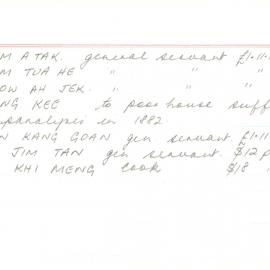 M ATAK. general servant £1.11.
M TUA HE " " "
OW AH JEK. " " "
NG KEE to poor house suff
paralysis in 1882
N KANG GOAN gen servant. £1.11
JIM TAN gen servant. $12 p
KHI MENG cook $18 "